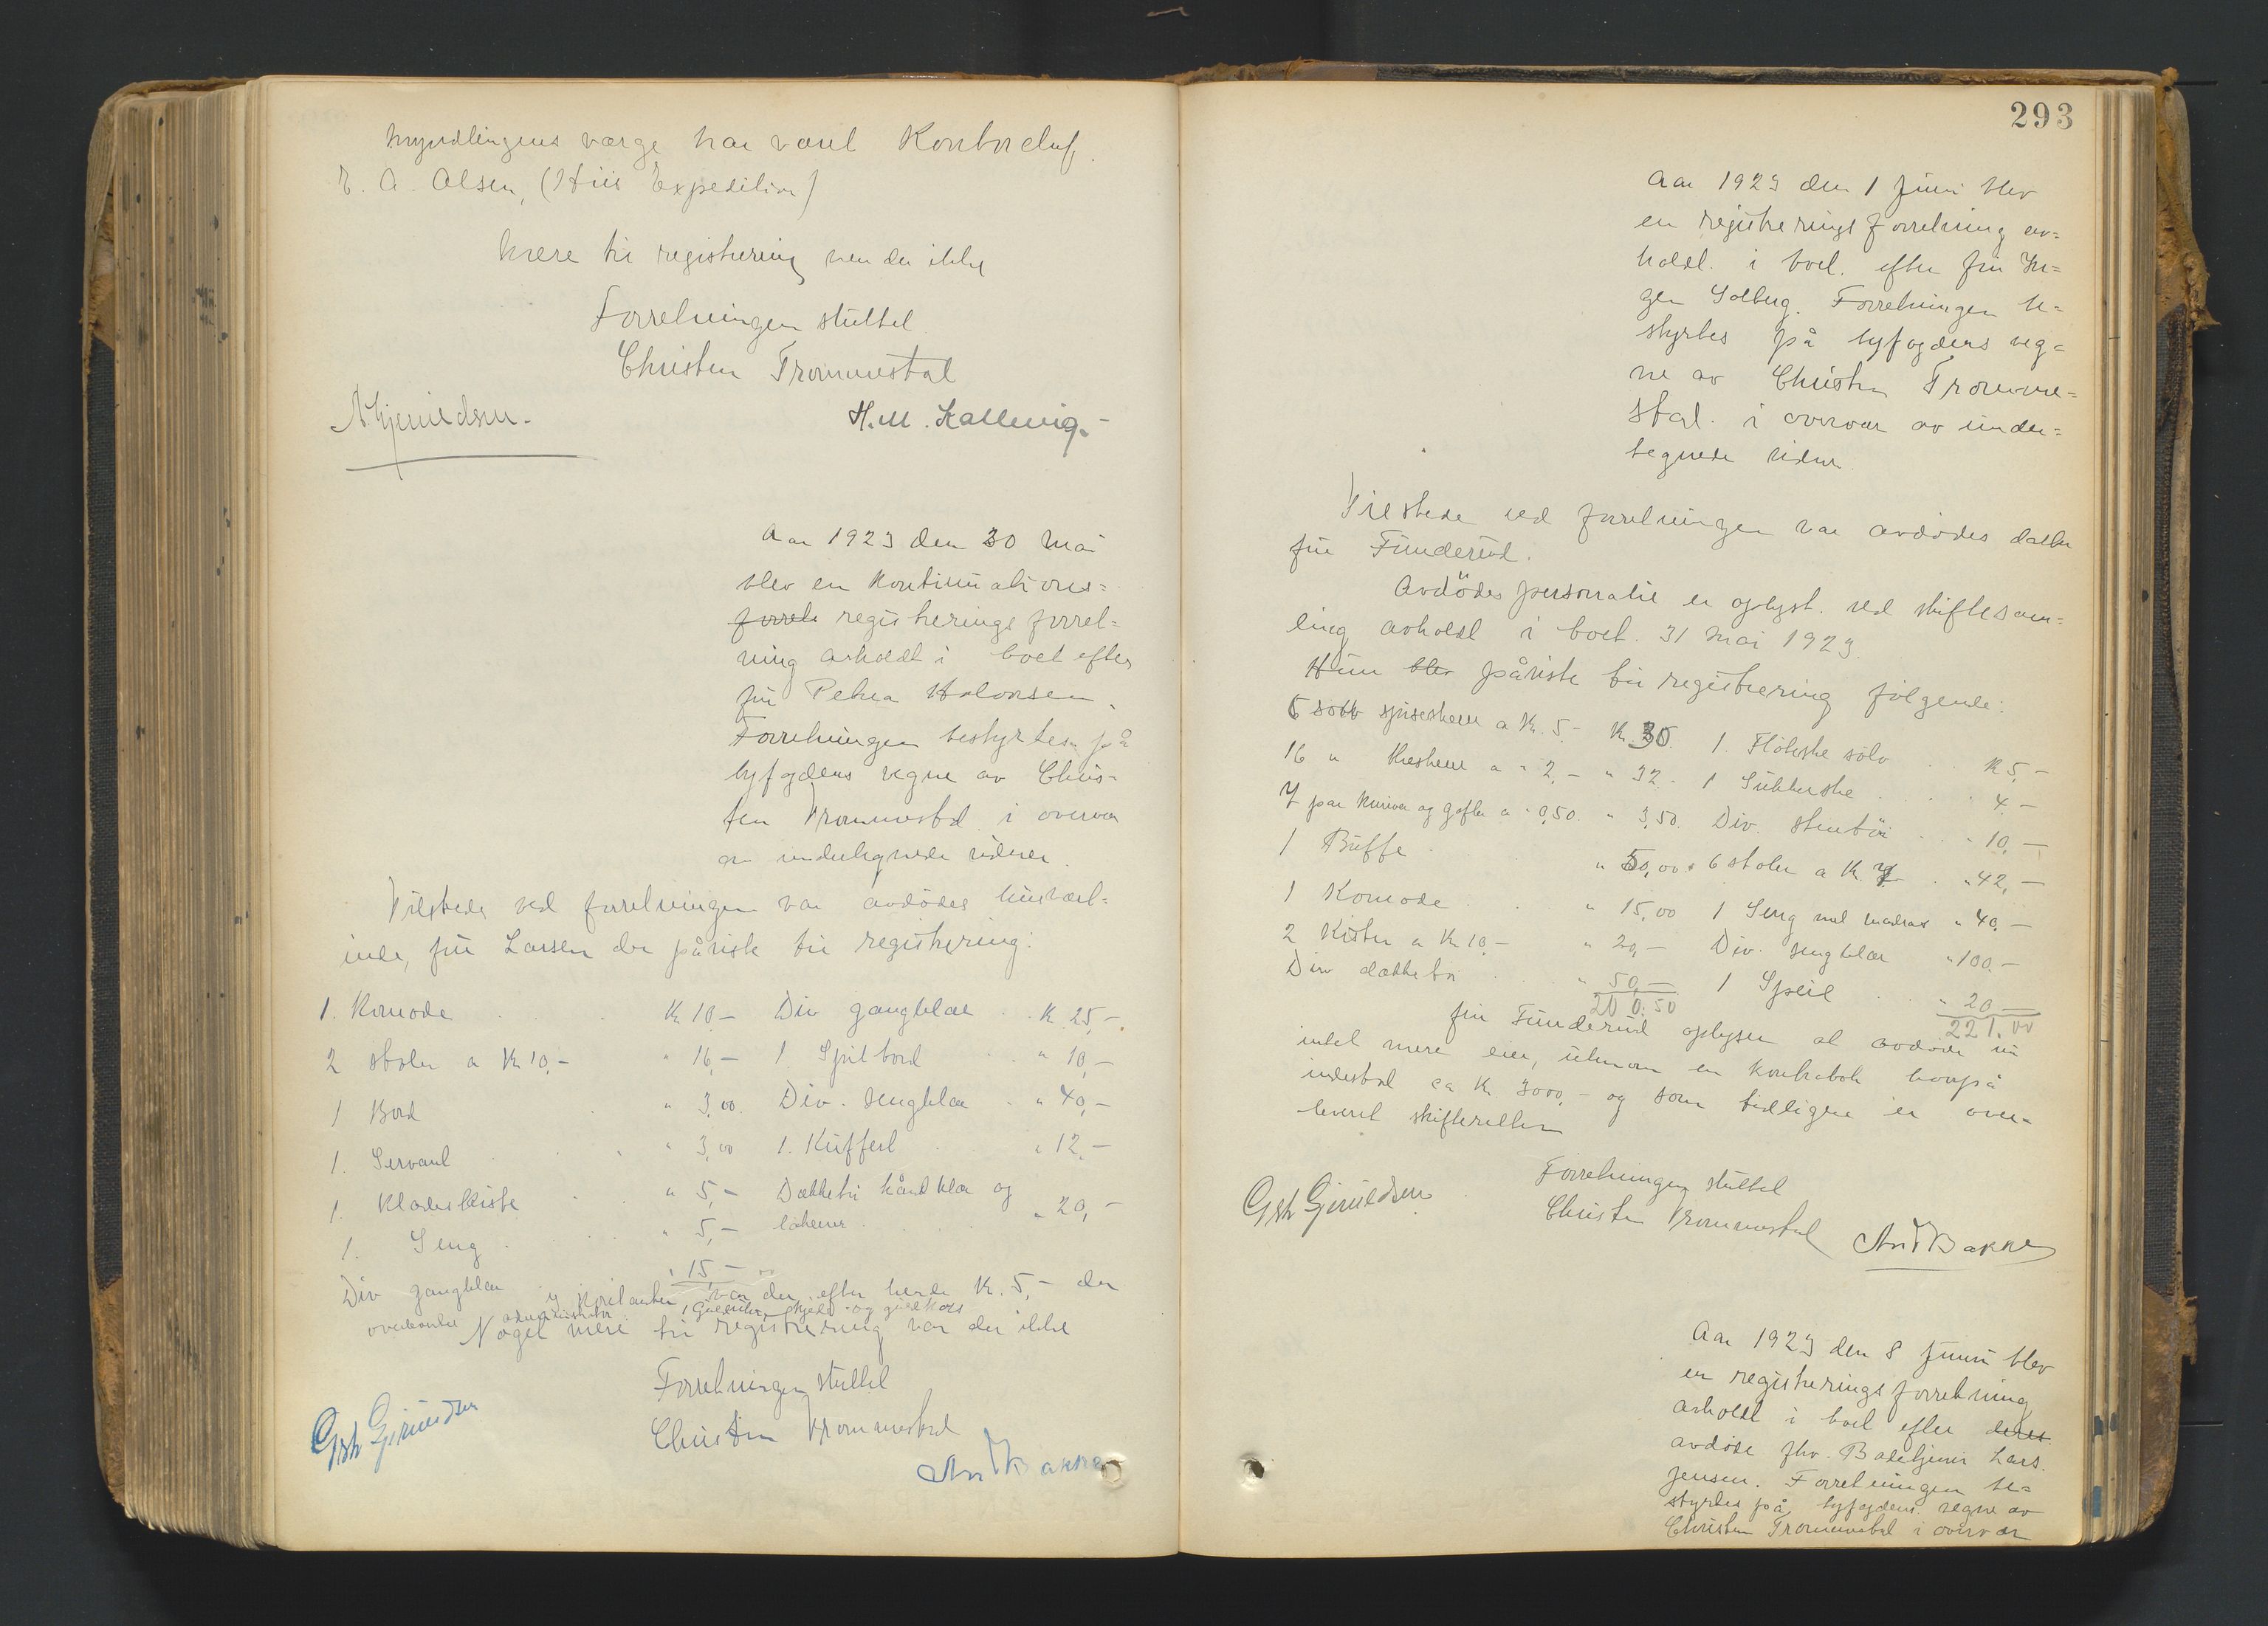 Myndlingens værge har været Kontorchef
E. A. Olsen, (Hiis Expedition)
mere til registrering var der ikke
Forretningen sluttet
Christen Trommestad
H. M. Kallevig.-
Aar 1923 den 30 Mai
blev en kontinuations=
forret registrerings forret=
ning avholdt i boet efter
fru Petra Halvorsen.
Forretningen bestyrtes på
byfogdens vegne av Chris=
ten Trommestad i overvær
av undertegnede vidner.
Tilstede ved forretningen var avdødes husvært=
inde, fru Larsen der påviste til registrering:
1. Komode Kr 10,- Div gangklær Kr. 25,-
2 stoler a Kr 10,- " 16,- 1 Spilbord " 10,-
1 Bord " 3,00. Div. sengklær " 40,-
1. Servant " 3,00 1. Kuffert " 12.-
1. Klædeskiste " 5,- Dækketøi håndklær og
1. Seng " 5,- lakener " 20,-
Div gangklær " 15,-
i kontanter var der efter hende Kr. 5,- der
overleveres administrator 1 Guldur, kjede og guldkors
Noget mere til registrering var der ikke
Forretningen sluttet
Christen Trommestad
And Bakke
293
Aar 1923 den 1 Juni blev
en registrerings forretning av=
holdt i boet efter fru In=
ger Solberg. Forretningen be=
styrtes på byfogdens veg=
ne av Christen Tromme=
stad i overvær av under=
tegnede vidner
Tilstede ved forretningen var avdødes datter
fru Funderud.
Avdödes personalie er oplyst ved skiftesam=
ling avholdt i boet 31 Mai 1923.
Hun blev påviste til registrering følgende:
6 sølv spiseskeer a Kr. 5.- Kr. 30. 1. Fløteske sølv Kr 5,-
16 " theskeer a " 2,- " 32.- 1 Sukkerske 4.-
7 par kniver og gafler a " 0,50. " 3,50. Div. stentöi " 10,-
1 Büffe " 50,00. 6 stoler a Kr. 7 " 42,-
1 Komode " 15,00 1 Seng med madras " 40,-
2 Kister a Kr 10,- " 20,- Div. sengklær " 100.-
Div dækketøi " 50,- 1 Speil " 20.-
200.50 221.00
fru Funderud oplyser at avdøde nu
intet mere eier, utenom en kontrabok hvorpå
indestod ca Kr. 3000,- og som tidligere er over=
leveret skifteretten
Forretningen sluttet
Christen Trommestad
And Bakke
Aar 1923 den 8 Juni blev
en registrerings forretning
avholdt i boet efter deres
avdøde fhv. Lars
Jensen. Forretningen be=
styrtes på byfogdens vegne av
Christen Trommestad i overvær